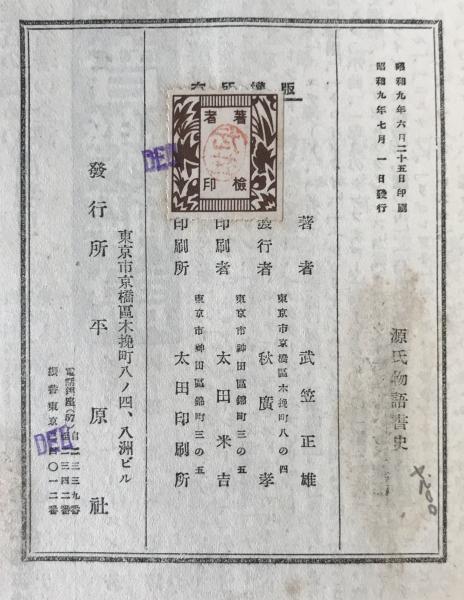 昭和九年六月二十五日印刷
昭和九年七月一日發行
源氏物語書史
版權所有
著者 武笠正雄
東京市京橋區木挽町八の四
發行者 秋廣孝
東京市神田區錦町三の五
印刷者 太田米吉
東京市神田區錦町三の五
印刷所 太田印刷所
東京市京橋區木挽町八ノ四、八洲ビル
發行所 平原社
電話銀座(57)自一三三九番
至一三四二番
振替東京
〇一二番
著者
檢印
DEC
DEC